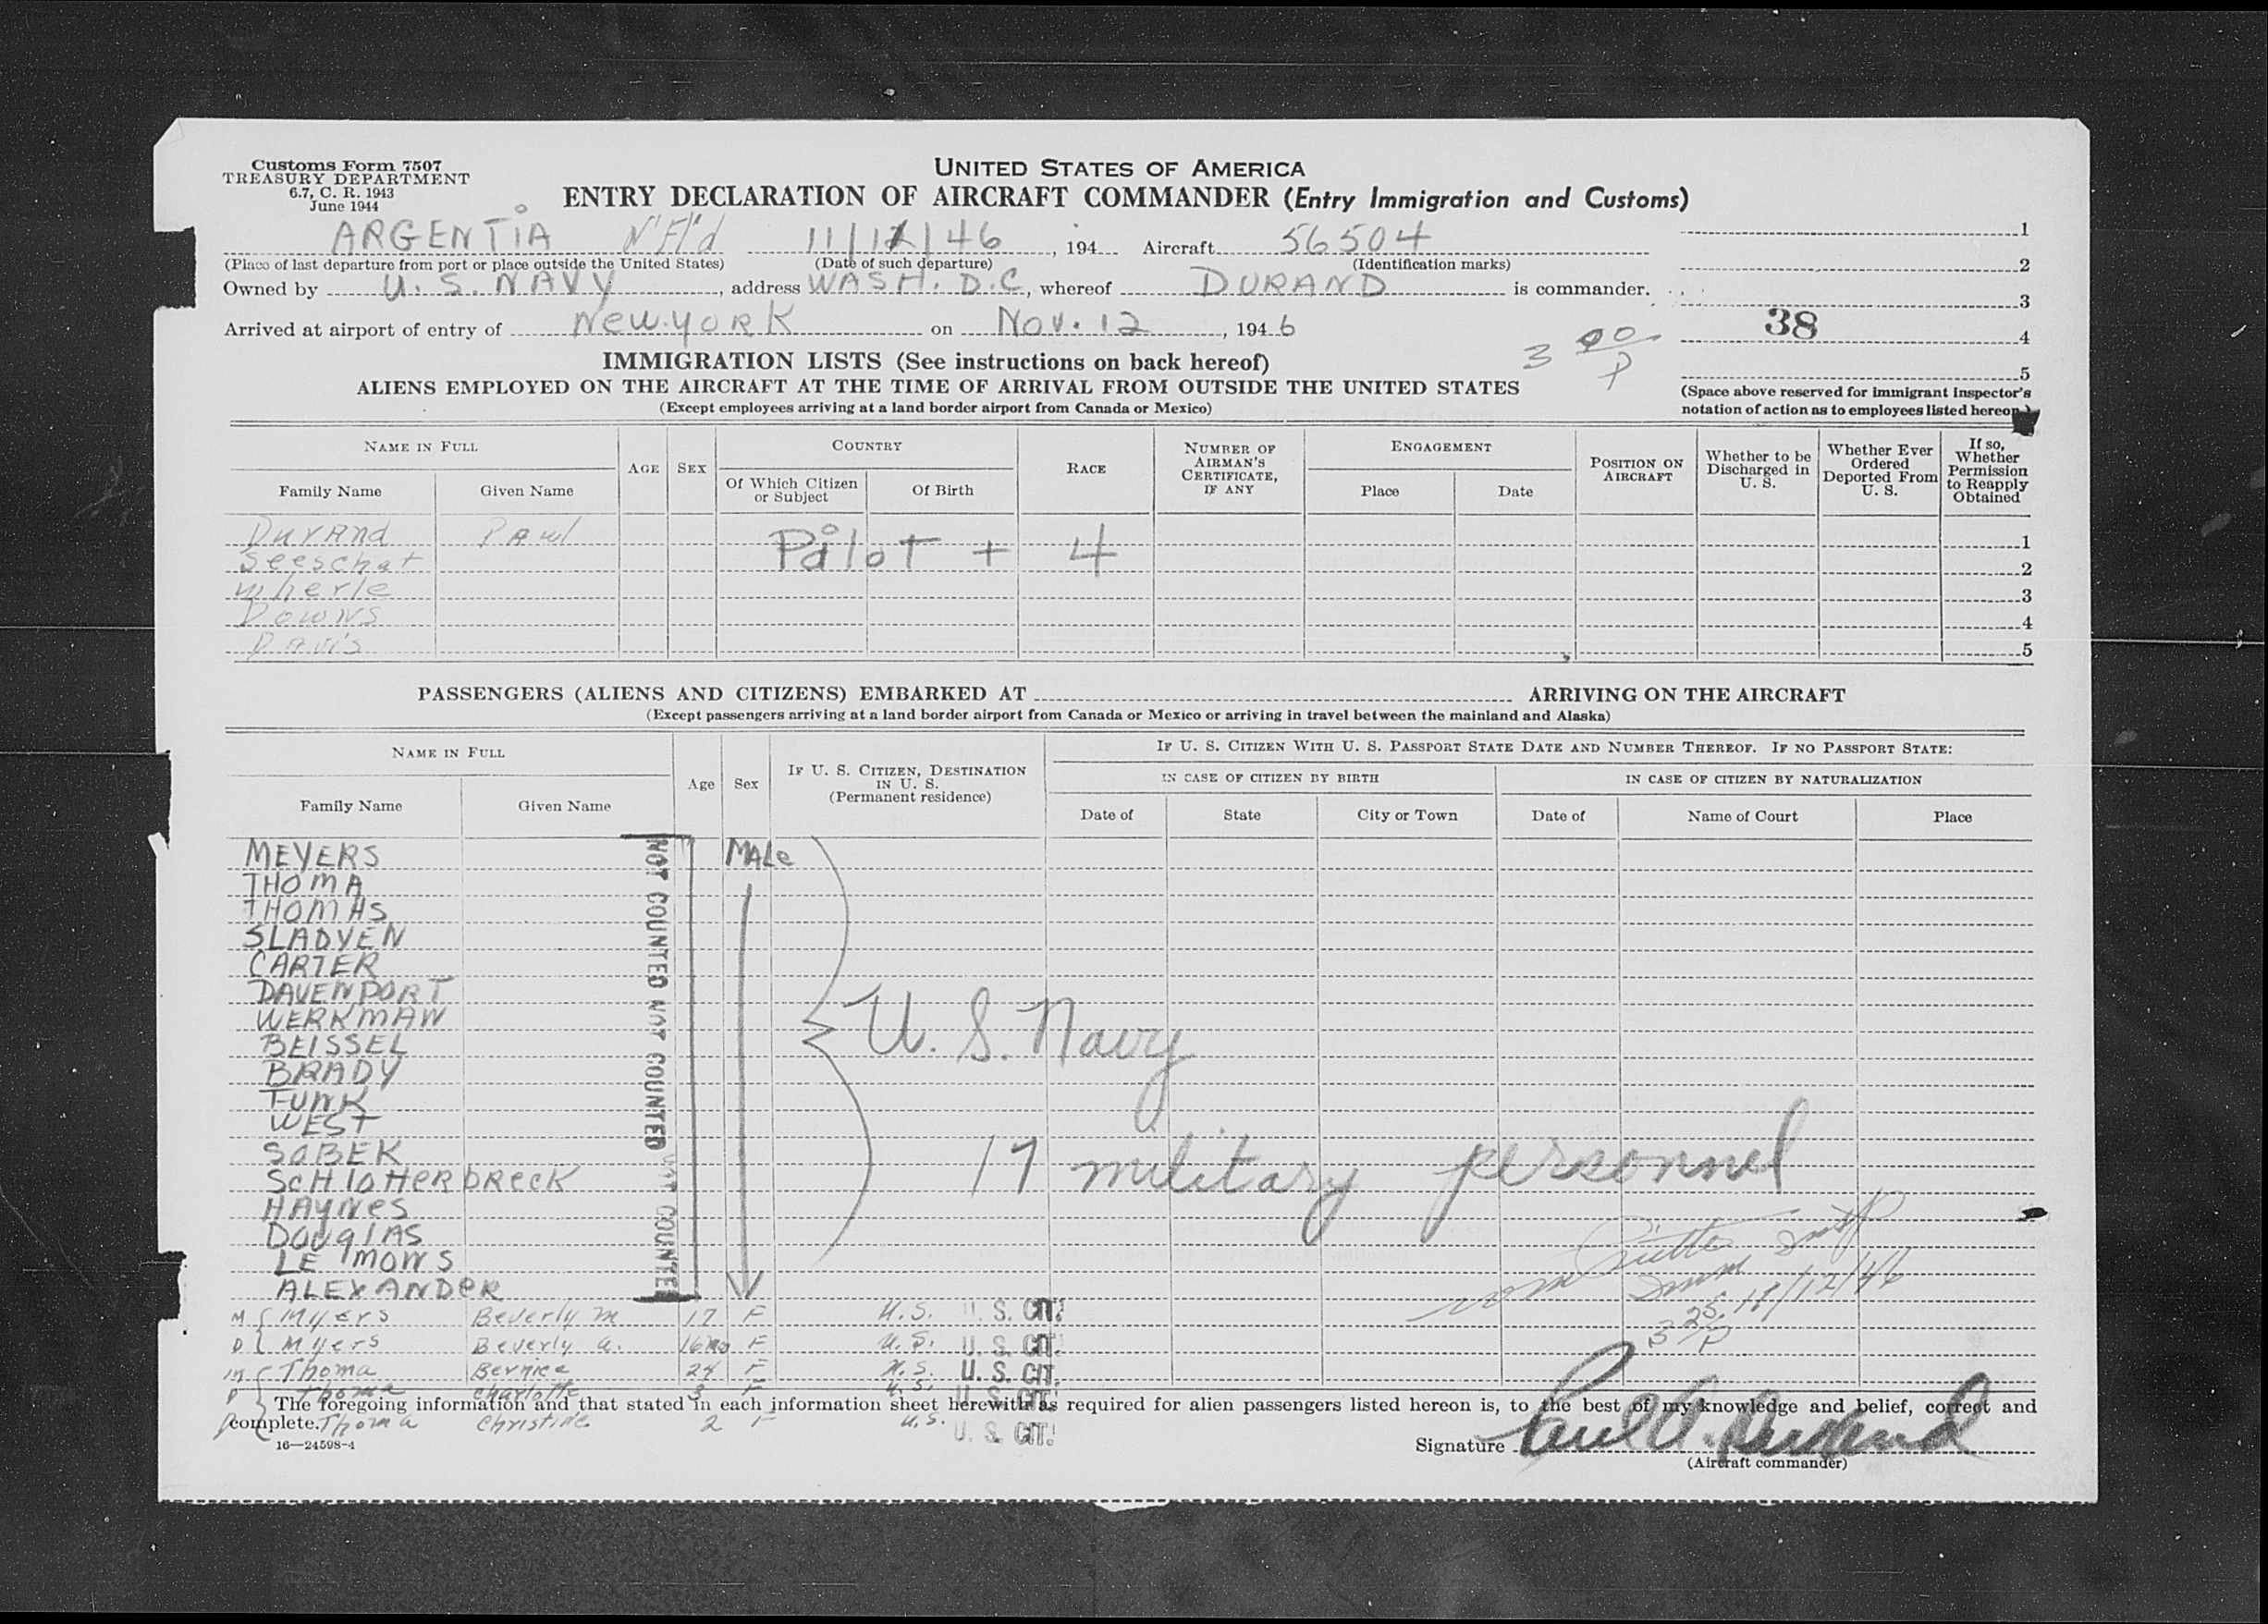 Customs Form 7507
TREASURY DEPARTMENT
6.7, C. R. 1943
June 1944
UNITED STATES OF AMERICA
ENTRY DECLARATION OF AIRCRAFT COMMANDER (Entry Immigration and Customs)
ARGENTIA N'F'l'd 11/12/46, 194 Aircraft 56504 1
(Place of last departure from port or place outside the United States) (Date of such departure) (Identification marks) 2
Owned by U. S. NAVY, address WASH. D.C, whereof DURAND is commander. 3
Arrived at airport of entry of New York on Nov. 12, 1946 38 4
3 00/P 5
IMMIGRATION LISTS (See instructions on back hereof)
ALIENS EMPLOYED ON THE AIRCRAFT AT THE TIME OF ARRIVAL FROM OUTSIDE THE UNITED STATES
(Except employees arriving at a land border airport from Canada or Mexico)
(Space above reserved for immigrant inspector's
notation of action as to employees listed hereon.)
NAME IN FULL
Family Name Given Name
AGE SEX
COUNTRY
Of Which Citizen or Subject Of Birth
RACE
NUMBER OF AIRMAN'S CERTIFICATE, IF ANY
ENGAGEMENT
Place Date
POSITION ON AIRCRAFT
Whether to be Discharged in U. S.
Whether Ever Ordered Deported From U. S.
If so, Whether Permission to Reapply Obtained
Durand Paul Pilot + 4 1
Seeschat 2
Wherle 3
Downs 4
Davis 5
PASSENGERS (ALIENS AND CITIZENS) EMBARKED AT ARRIVING ON THE AIRCRAFT
(Except passengers arriving at a land border airport from Canada or Mexico or arriving in travel between the mainland and Alaska)
NAME IN FULL
Family Name Given Name
Age Sex
IF U. S. CITIZEN, DESTINATION IN U. S. (Permanent residence)
IF U. S. CITIZEN WITH U. S. PASSPORT STATE DATE AND NUMBER THEREOF. IF NO PASSPORT STATE:
IN CASE OF CITIZEN BY BIRTH IN CASE OF CITIZEN BY NATURALIZATION
Date of State City or Town Date of Name of Court Place
MEYERS MALe
THOMA
THOMAS
SLADYEN
CARTER
DAVENPORT
WERKMAN
BEISSEL
BRADY
FUNK
WEST
SOBEK
SCHlOtteRbReck
HAYNeS
DOUglAS
LE MONS
ALEXANDeR
NOT COUNTED NOT COUNTED NOT COUNTED
U. S. Navy
17 military personnel
11/12/46
3 25/P
M Myers Beverly M. 17 F U.S. U. S. CIT.
D Myers Beverly A. 16mo F U.S. U. S. CIT.
M Thoma Bernice 24 F U.S. U. S. CIT.
D Thoma Charlotte 3 F U.S. U. S. CIT.
D Thoma Christine 2 F U.S. U. S. CIT.
The foregoing information and that stated in each information sheet herewith as required for alien passengers listed hereon is, to the best of my knowledge and belief, correct and
complete.
16—24598-4
Signature Paul A. Durand
(Aircraft commander)